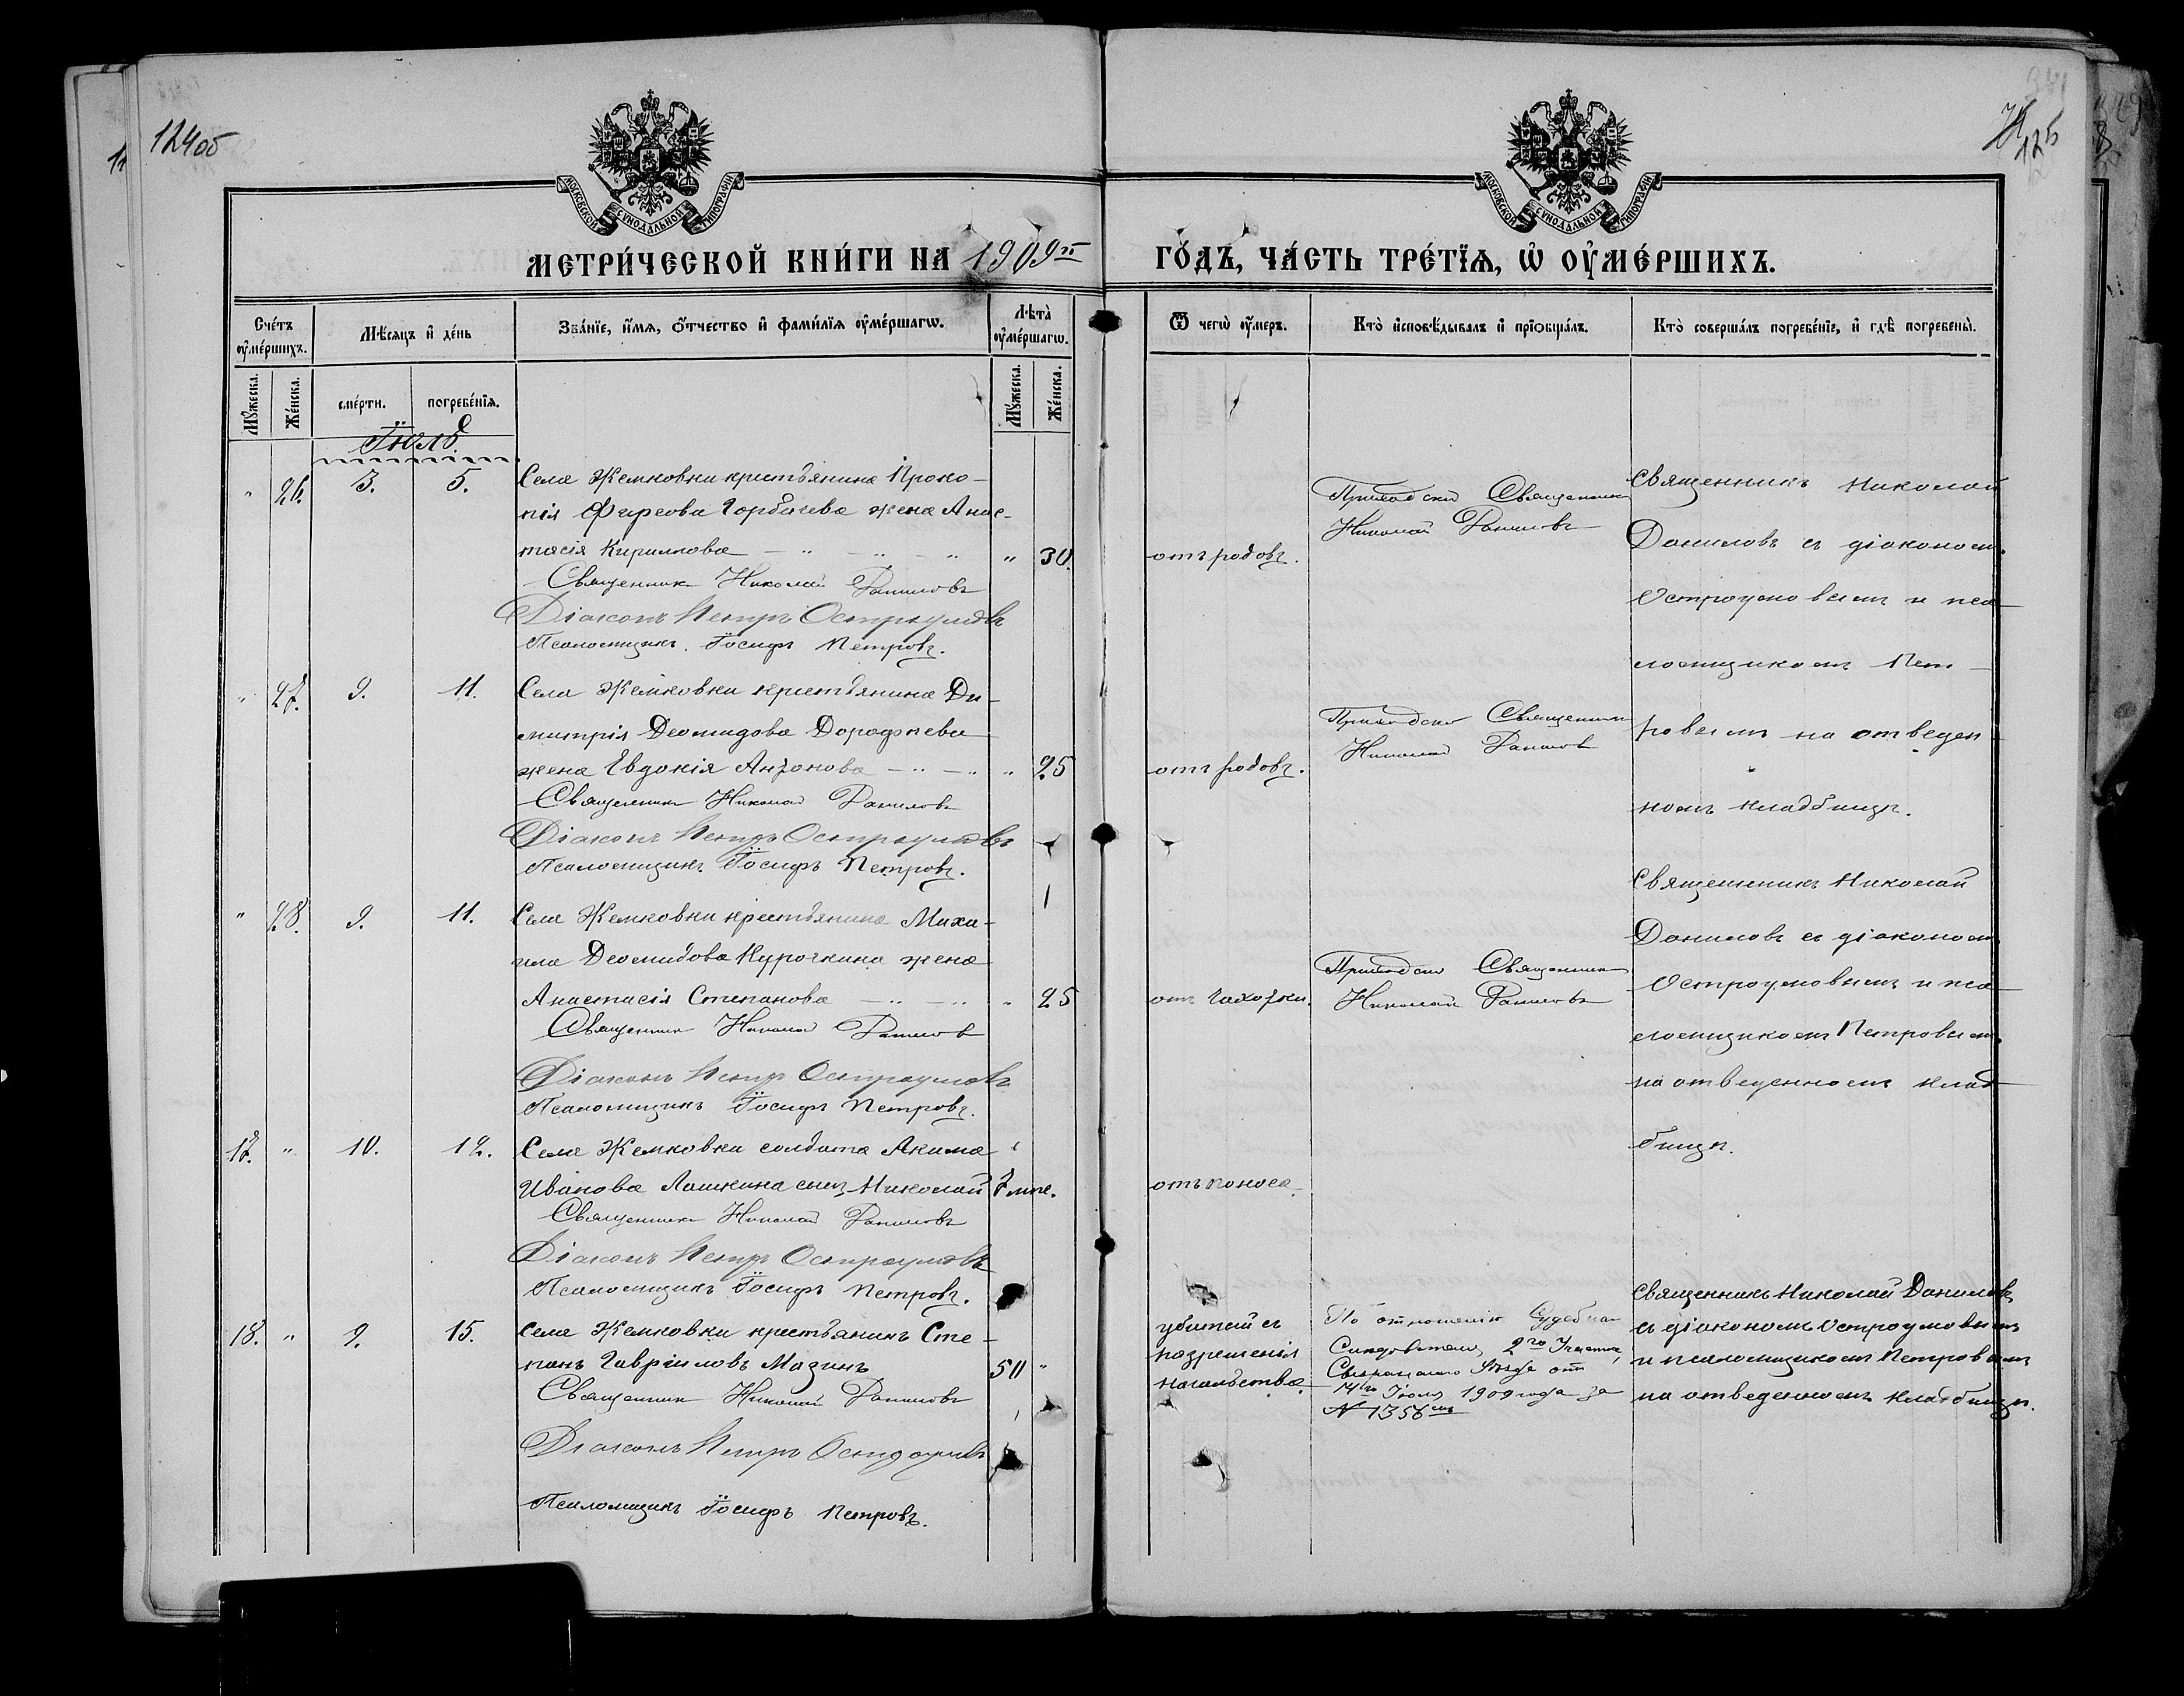 124об
125
МОСКОВСКОЙ СѴНОДАЛЬНОЙ ТИПОГРАФІИ
МОСКОВСКОЙ СѴНОДАЛЬНОЙ ТИПОГРАФІИ
МЕТРИ́ЧЕСКОЙ КНИ́ГИ НА 1909й
ГО́ДЪ, ЧА́СТЬ ТРЕ́ТЇѦ, Ѡ҆ ОУ҆МЕ́РШИХЪ.
Сче́тъ оу҆ме́ршихъ.
Мѣ́сяцъ и҆ де́нь
Зва́нїе, и҆́мѧ, ѻ҆́тчество и҆ фами́лїѧ оу҆ме́ршагѡ.
Лѣта̀ оу҆ме́ршагѡ.
Ѿ чегѡ̀ оу҆́меръ.
Кто̀ и҆сповѣ́дывалъ и҆ прїобща́лъ.
Кто̀ соверша́лъ погребе́нїе, и҆ гдѣ̀ погребены̀.
Мꙋ́жеска. Же́нска. сме́рти. погребе́нїѧ. Мꙋ́жеска. Же́нска.
Іюль.
" 26. 3. 5. Села Жемковки крестьянина Проко-
пія Фирсова Горбачева жена Анас-
тасія Кириллова — " — " — " " 30.
Священник Николай Данилов
Діаконъ Петръ Остроумовъ
Псаломщикъ Іосифъ Петровъ.
отъ родовъ.
Приходский Священник
Николай Данилов
Священникъ Николай
Даниловъ съ діакономъ
Остроумовымъ и пса-
ломщикомъ Пет-
ровымъ на отведен
номъ кладбищѣ.
" 27. 9. 11. Села Жемковки крестьянина Ди-
митрія Деомидова Дорофѣева
жена Евдокія Антонова — " — " " 25
Священник Николай Данилов
Діаконъ Петръ Остроумовъ
Псаломщикъ Іосифъ Петровъ.
отъ родовъ.
Приходский Священник
Николай Данилов
" 28. 9. 11. Села Жемковки крестьянина Миха-
ила Деомидова Курочкина жена
Анастасія Степанова — " — " " 25
Священник Николай Данилов
Діаконъ Петръ Остроумовъ
Псаломщикъ Іосифъ Петровъ.
отъ чахотки.
Приходский Священник
Николай Данилов
Священникъ Николай
Даниловъ съ діакономъ
Остроумовымъ и пса-
ломщикомъ Петровымъ
на отведенномъ клад-
бищѣ.
17. " 10. 12. Села Жемковки солдата Акима
Иванова Лашкина сынъ Николай 7 мѣс.
Священник Николай Данилов
Діаконъ Петръ Остроумовъ
Псаломщикъ Іосифъ Петровъ.
отъ поноса.
18. " 9. 15. Села Жемковки крестьянинъ Сте-
панъ Гавріиловъ Мазинъ 50 "
Священник Николай Данилов
Діаконъ Петръ Остроумовъ
Псаломщикъ Іосифъ Петровъ.
убитый съ
разрешенія
начальства.
По отношенію Судебнаго
Следователя 2го Участка
Сызранского Уезда от
14го Іюля 1909 года за
№ 1356мъ
Священникъ Николай Даниловъ
съ діакономъ Остроумовымъ
и псаломщикомъ Петровымъ
на отведенномъ кладбищѣ.